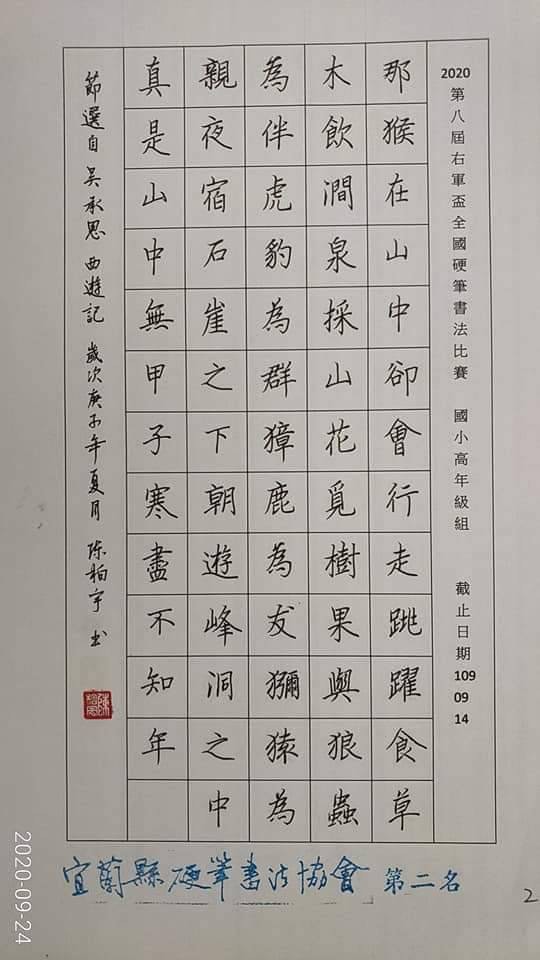 2020第八屆右軍盃全國硬筆書法比賽 國小高年級組 截止日期 109 09 14
那猴在山中卻會行走跳躍食草
木飲澗泉採山花覓樹果與狼蟲
為伴虎豹為群獐鹿為友獼猿為
親夜宿石崖之下朝遊峰洞之中
真是山中無甲子寒盡不知年
節選自 吳承恩 西遊記 歲次庚子年夏月 陳柏宇 書
宜蘭縣硬筆書法協會 第二名
2
2020-09-24